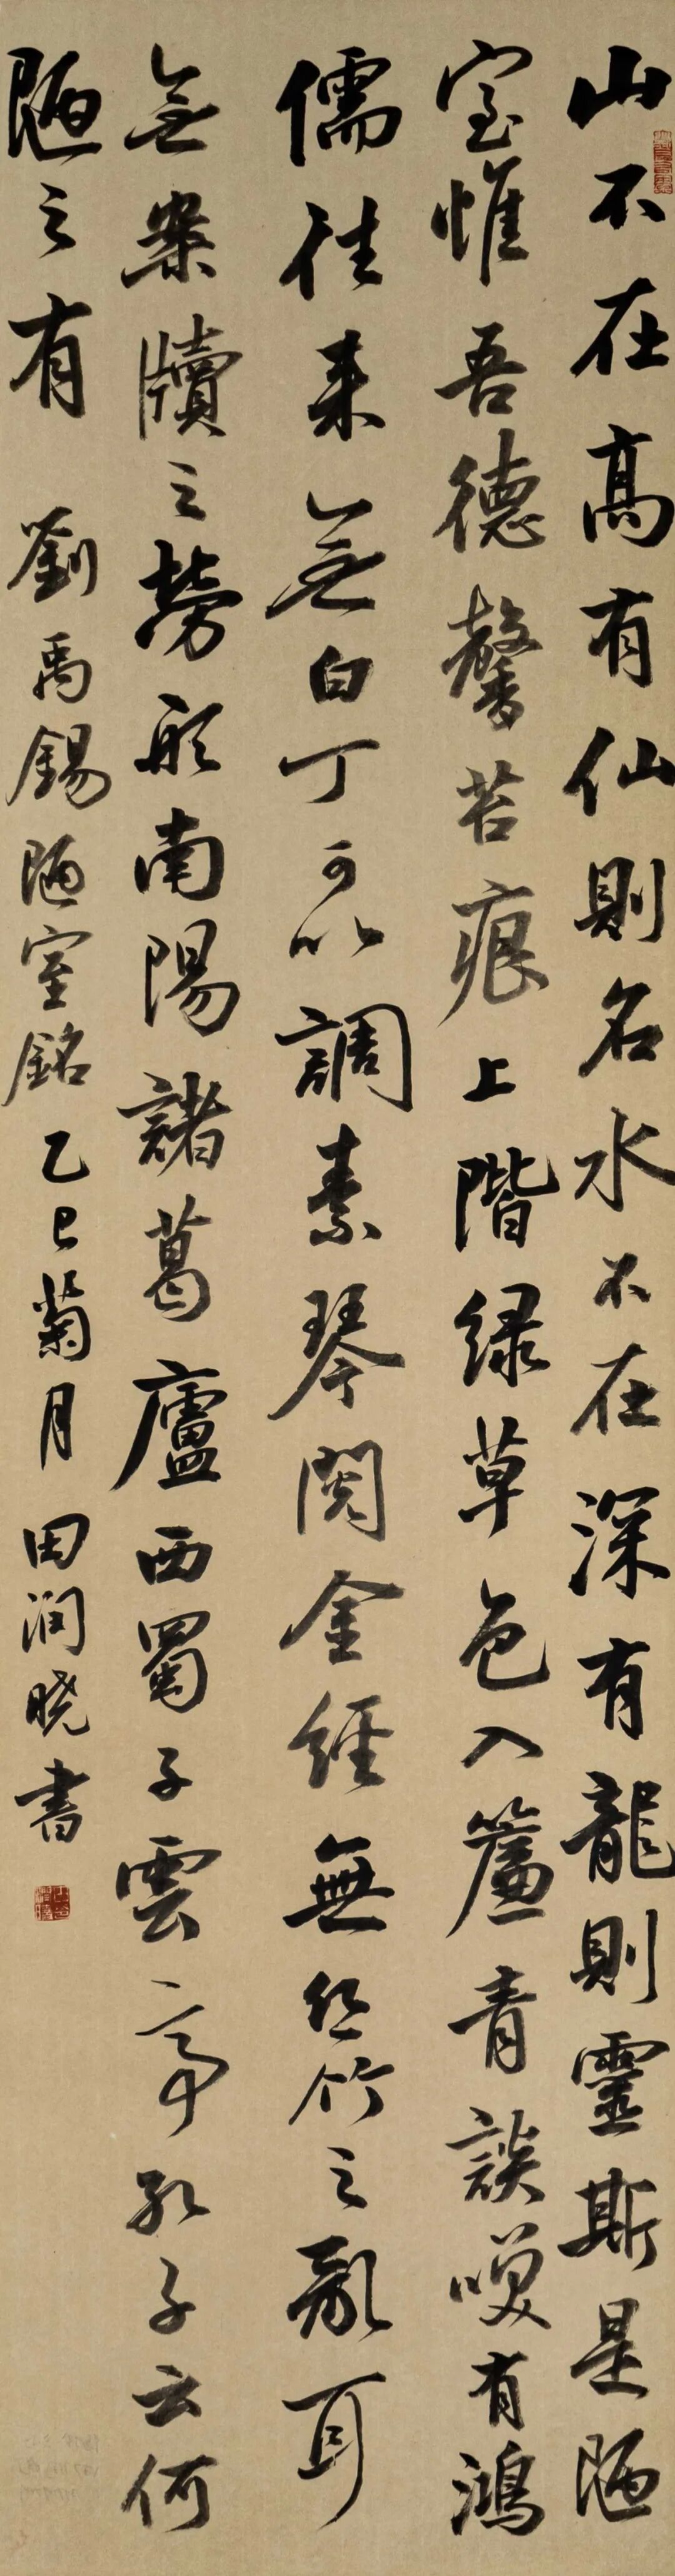 山不在高有仙則名水不在深有龍則靈斯是陋
室惟吾德馨苔痕上階绿草色入簾青談笑有鴻
儒往来無白丁可以調素琴閱金經無絲竹之亂耳
無案牘之勞形南陽諸葛廬西蜀子雲亭孔子云何
陋之有 劉禹錫陋室銘乙巳菊月田润晓書